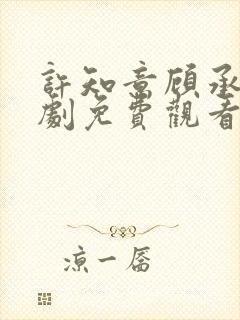 許知意顧承
劇免費觀看
涼一唇